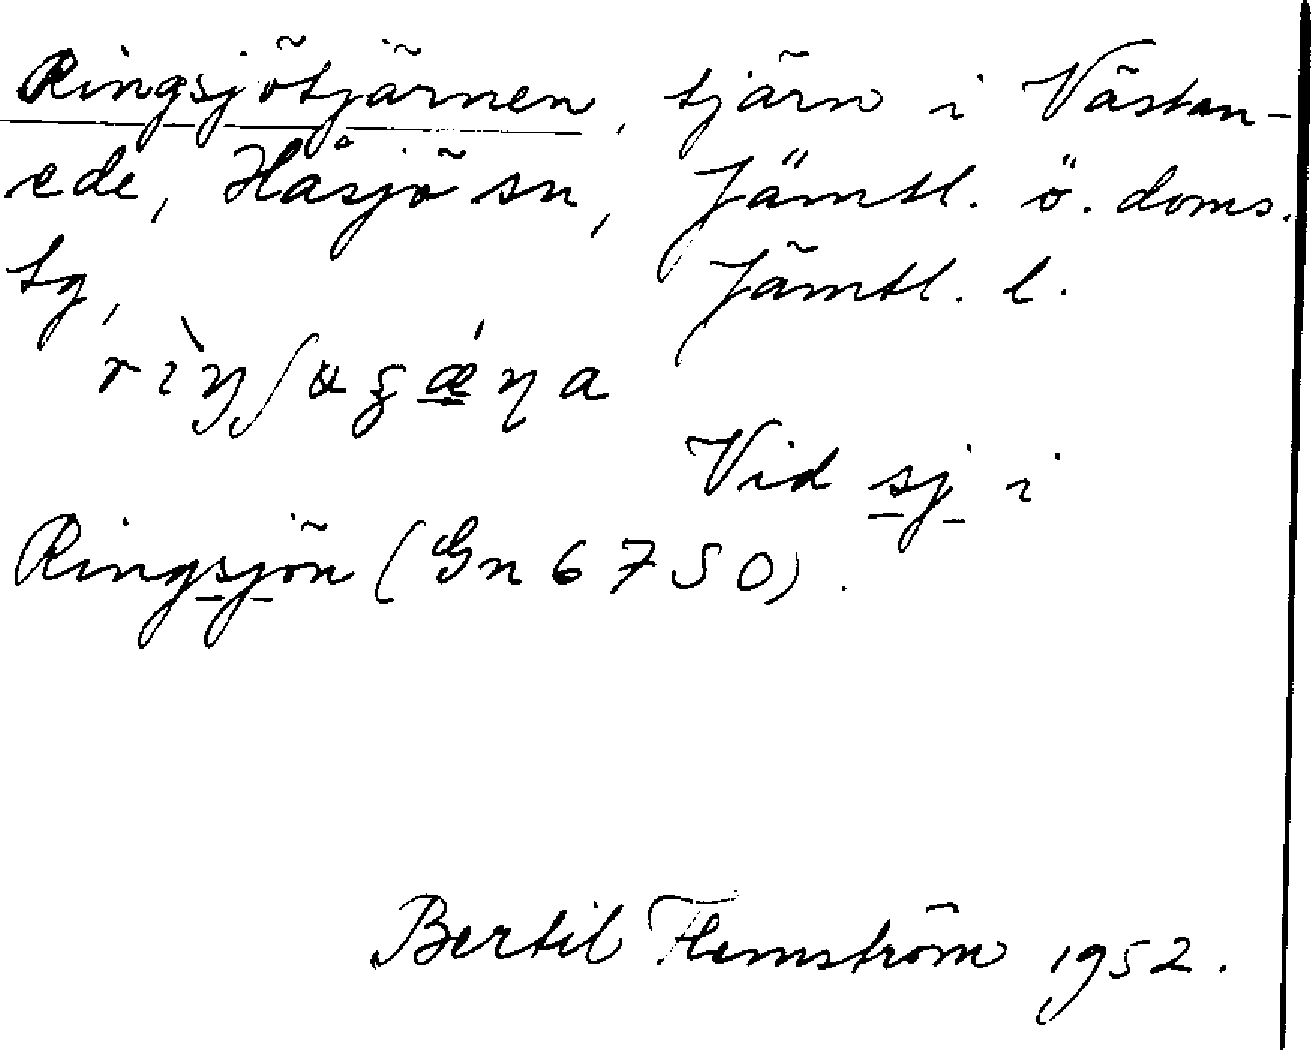 Ringsjötjärnen, tjärn i Västan-
ede, Håsjö sn, Jämtl. ö. doms.
tg, Jämtl. l.
Vid sj i
Ringsjön (Gn 6750).
Bertil Flemström 1952.